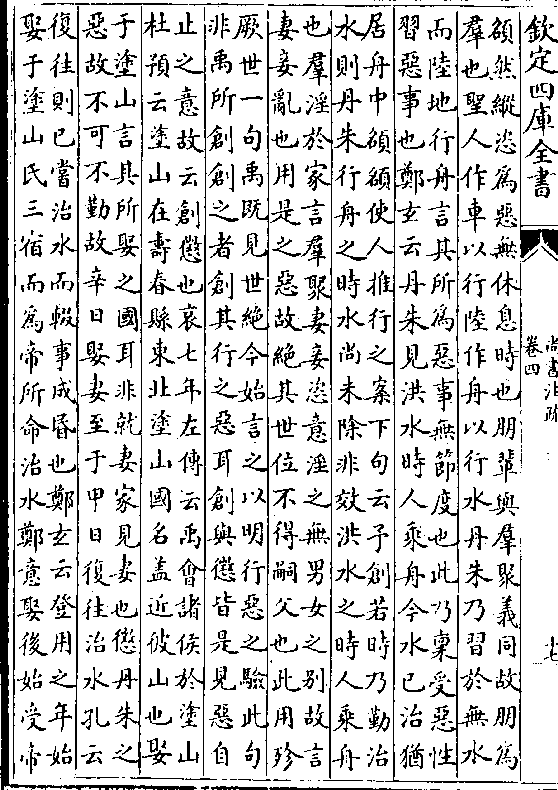 欽定四庫全書
尚書注疏
卷四
十七
頟然縱恣為惡無休息時也朋輩與羣聚義同故朋為
羣也聖人作車以行陸作舟以行水丹朱乃習於無水
而陸地行舟言其所為惡事無節度也此乃稟受惡性
習惡事也鄭玄云丹朱見洪水時人乘舟今水已治猶
居舟中頟頟使人推行之案下句云予創若時乃勤治
水則丹朱行舟之時水尚未除非效洪水之時人乘舟
也羣淫於家言羣聚妻妾恣意淫之無男女之别故言
妻妾亂也用是之惡故絶其世位不得嗣父也此用殄
厥世一句禹既見世絶今始言之以明行惡之驗此句
非禹所創創之者創其行之惡耳創與懲皆是見惡自
止之意故云創懲也哀七年左傳云禹會諸侯於塗山
杜預云塗山在壽春縣東北塗山國名盖近彼山也娶
于塗山言其所娶之國耳非就妻家見妻也懲丹朱之
惡故不可不勤故辛日娶妻至于甲日復往治水孔云
復往則已當治水而輟事成昏也鄭玄云登用之年始
娶于塗山氏三宿而為帝所命治水鄭意娶後始受帝